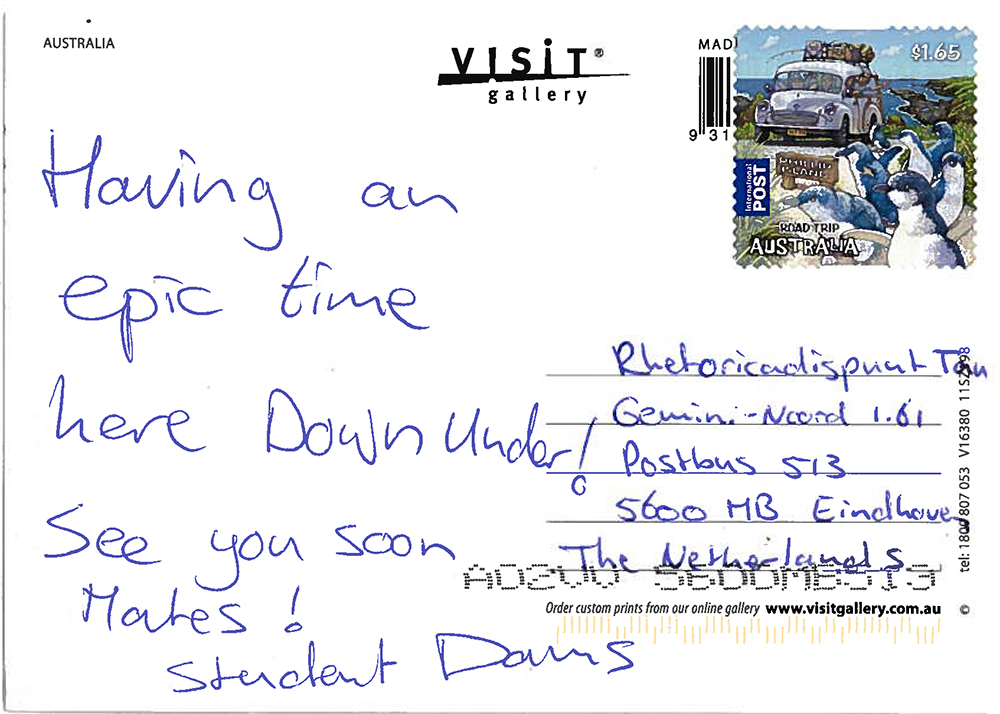 AUSTRALIA
VISIT®
gallery
MAD
9 31
$1.65
International
POST
ROAD TRIP
AUSTRALIA
Having an
epic time
here Down Under!
See you soon
Mates!
student Dams
Rhetoricadispuut Tau
Gemini-Noord 1.61
Postbus 513
5600 MB Eindhoven
The Netherlands
Order custom prints from our online gallery www.visitgallery.com.au ©
tel: 1800 807 053 V16380 11S2998